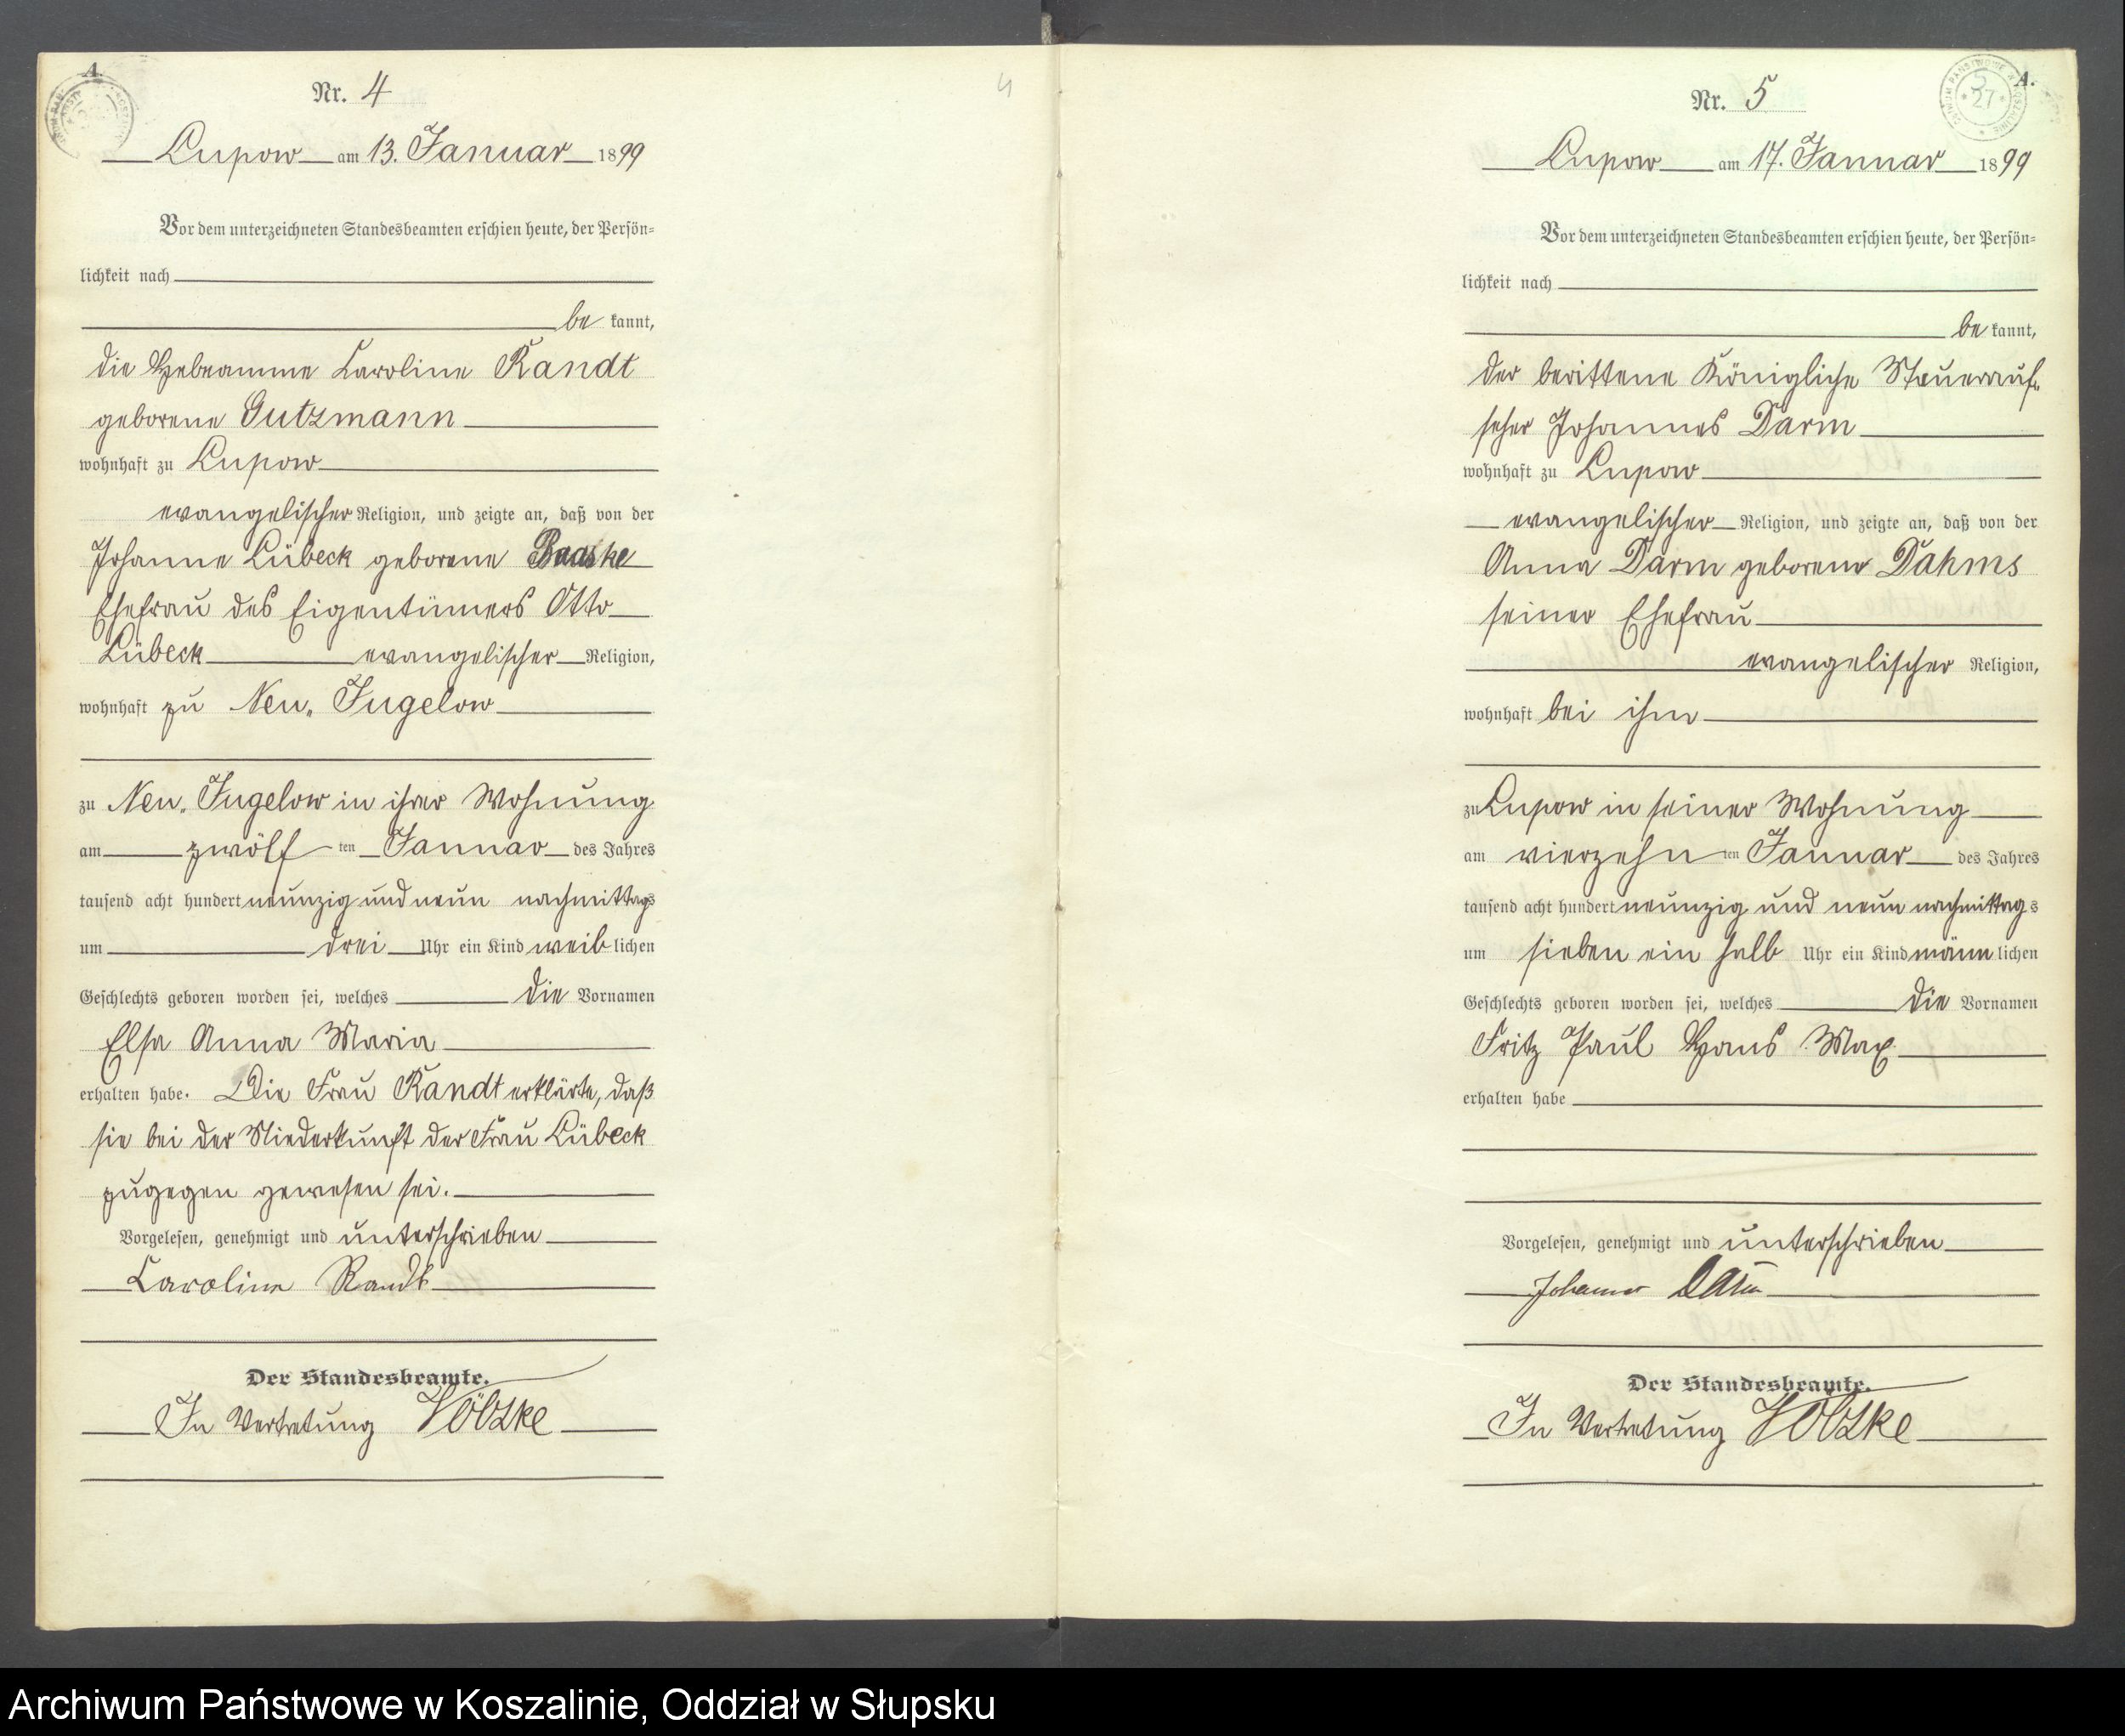 A.
Nr. 4
Lupow am 13. Januar 1899
Vor dem unterzeichneten Standesbeamten erschien heute, der Persön=
lichkeit nach
be kannt,
die Hebeamme Caroline Randt
geborene Gutzmann
wohnhaft zu Lupow
evangelischer Religion, und zeigte an, daß von der
Johanne Lübeck geborene Baaske
Ehefrau des Eigentümers Otto
Lübeck evangelischer Religion,
wohnhaft zu Neu„ Jugelow
zu Neu„ Jugelow in ihrer Wohnung
am zwölf ten Januar des Jahres
tausend acht hundert neunzig und neun nachmittags
um drei Uhr ein Kind weib lichen
Geschlechts geboren worden sei, welches die Vornamen
Elsa Anna Maria
erhalten habe. Die Frau Randt erklärte, daß
sie bei der Niederkunft der Frau Lübeck
zugegen gewesen sei.
Vorgelesen, genehmigt und unterschrieben
Caroline Randt
Der Standesbeamte.
In Vertretung
4
A.
5
27
Nr. 5
Lupow am 17. Januar 1899
Vor dem unterzeichneten Standesbeamten erschien heute, der Persön=
lichkeit nach
be kannt,
der berittene Königliche Steuerauf„
seher Johannes Darm
wohnhaft zu Lupow
evangelischer Religion, und zeigte an, daß von der
Anna Darm geborene Dahms
seiner Ehefrau
evangelischer Religion,
wohnhaft bei ihm
zu Lupow in seiner Wohnung
am vierzehn ten Januar des Jahres
tausend acht hundert neunzig und neun nachmittag s
um sieben ein halb Uhr ein Kind männ lichen
Geschlechts geboren worden sei, welches die Vornamen
Fritz Paul Hans Max
erhalten habe
Vorgelesen, genehmigt und unterschrieben
Johannes Darm
Der Standesbeamte.
In Vertretung
Archiwum Państwowe w Koszalinie, Oddział w Słupsku